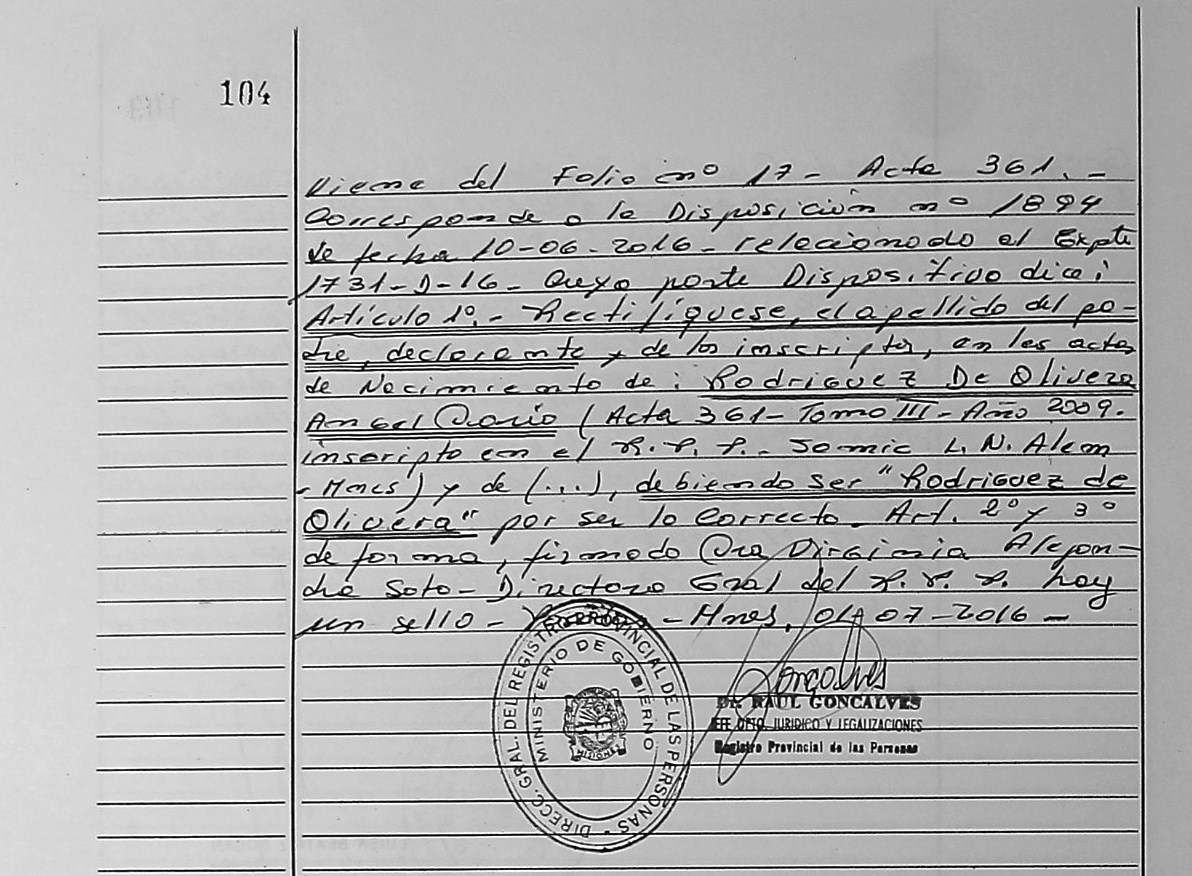 104
Viene del Folio nº 17- Acta 361.-
Corresponde a la Disposición nº 1894
de fecha 10-06-2016- relacionado al Expte
1731-D-16- Cuya parte Dispositivo dice:
Artículo 1º.- Rectifíquese, el apellido del pa-
dre, declarante y de los inscriptos, en las actas
de Nacimiento de: Rodriguez De Olivera
Angel (Acta 361- Tomo III- Año 2009.
inscripto en el R.P.P.- Samic L.N. Alem
-Mnes) y de (...), debiendo ser "Rodriguez de
Olivera" por ser lo Correcto- Art. 2º y 3º
de forma, firmado Dra Virginia Alejan-
dra Soto- Directora Gral del R.P.P. hay
un sello- Posadas -Mnes, 07-2016-
DIRECC. GRAL. DEL REGISTRO PROVINCIAL DE LAS PERSONAS -
MINISTERIO DE GOBIERNO
MISIONES
Gonçalves
Dr. RAUL GONCALVES
JEFE DPTO. JURIDICO Y LEGALIZACIONES
Registro Provincial de las Personas